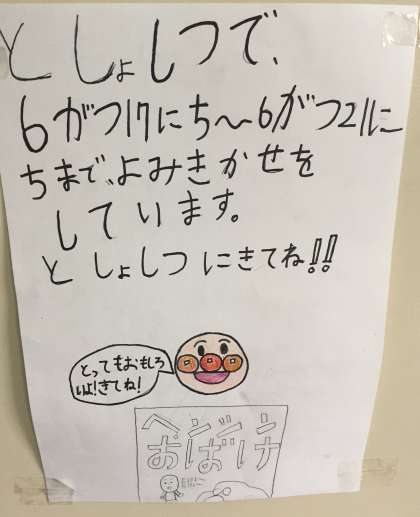 としょしつで、
6がつ17にち〜6がつ21に
ちまで、よみきかせを
しています。
としょしつにきてね!!
とってもおもしろ
いよ!きてね!
おばけ